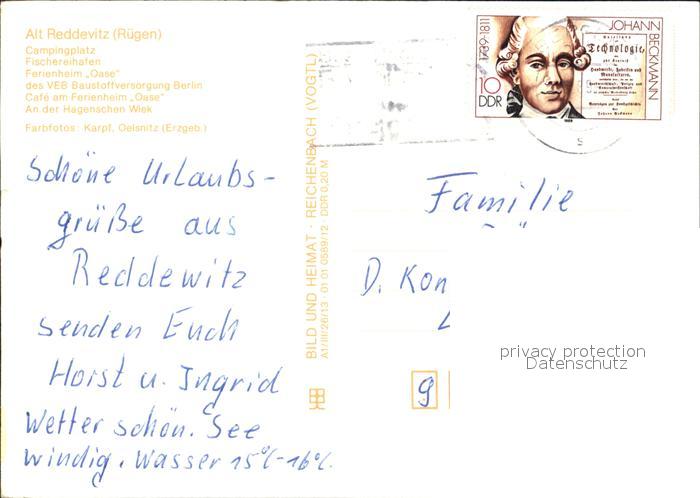 Alt Reddevitz (Rügen)
Campingplatz
Fischereihafen
Ferienheim „Oase"
des VEB Baustoffversorgung Berlin
Café am Ferienheim „Oase"
An der Hagenschen Wiek
Farbfotos: Karpf, Oelsnitz (Erzgeb.)
Schöne Urlaubs-
grüße aus
Reddewitz
senden Euch
Horst u. Ingrid
Wetter schön. See
windig. Wasser 15°C-16°C.
BILD UND HEIMAT · REICHENBACH (VOGTL)
A1/III/26/13 · 01 01 0589/12 · DDR 0,20 M
1739-1811
JOHANN
BECKMANN
Technologie,
10
DDR
Familie
D. Kon
9
privacy protection
Datenschutz